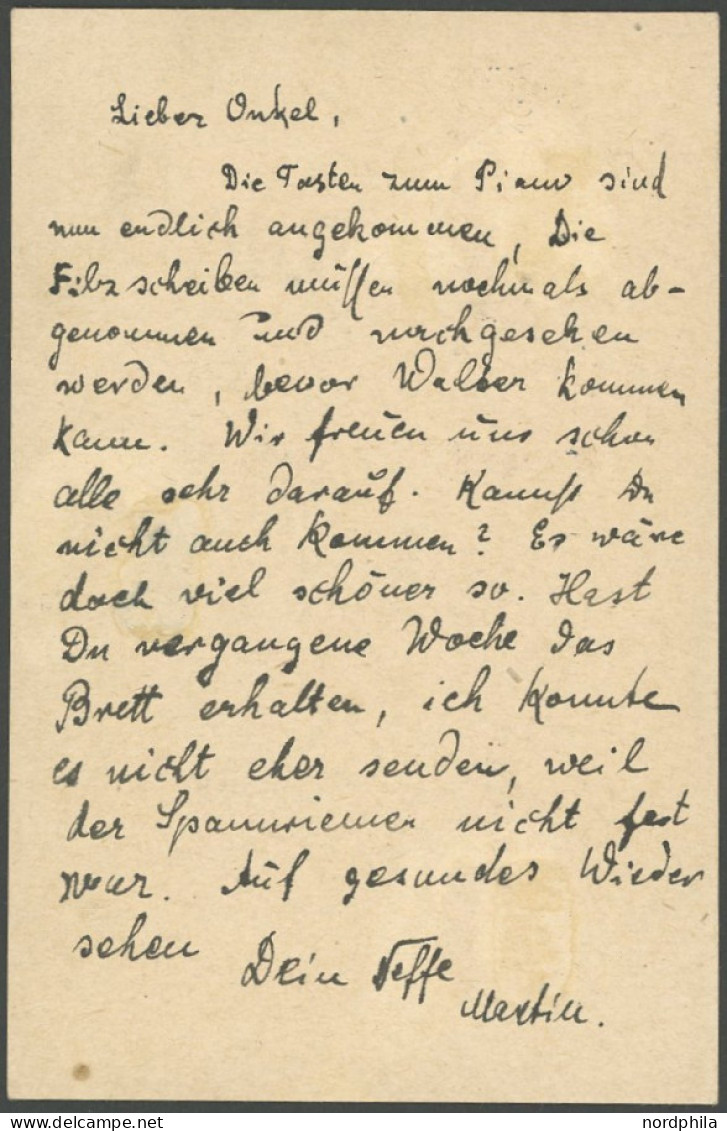 Lieber Onkel,
Die Tasten zum Piano sind
nun endlich angekommen, Die
Filzscheiben müssen nochmals ab-
genommen und nachgesehen
werden, bevor Walter kommen
kann. Wir freuen uns schon
alle sehr darauf. Kannst Du
nicht auch kommen? Es wäre
doch viel schöner so. Hast
Du vergangene Woche das
Brett erhalten, ich konnte
es nicht eher senden, weil
der Spannriemen nicht fest
war. Auf gesundes Wieder
sehen
Dein Neffe
Martin.
nordphila